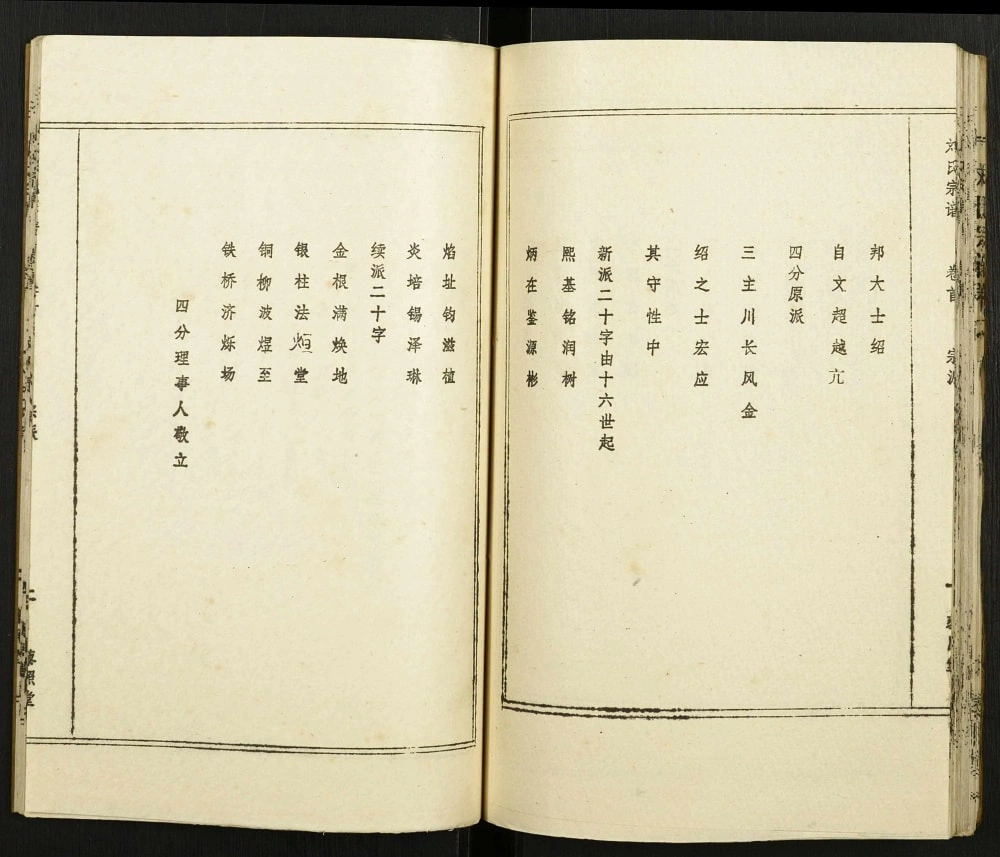 刘氏宗谱
卷首
宗派
邦大士绍
自文超越亢
四分原派
三主川长风金
绍之士宏应
其守性中
新派二十字由十六世起
熙基铭润树
炳在鉴源彬
焰址钧滋植
炎培锡泽琳
续派二十字
金根满焕地
银柱法烜堂
铜柳波煜至
铁桥济烁场
四分理事人敬立